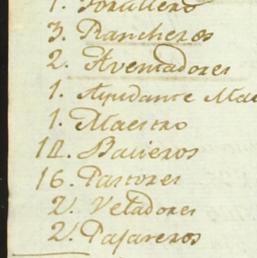 1. Torillero
3. Rancheros
2. Aventadores
1. Ayudante Mae
1. Maestro
14. Bacieros
16. Pastores
2. Veladores
2. Pajareros